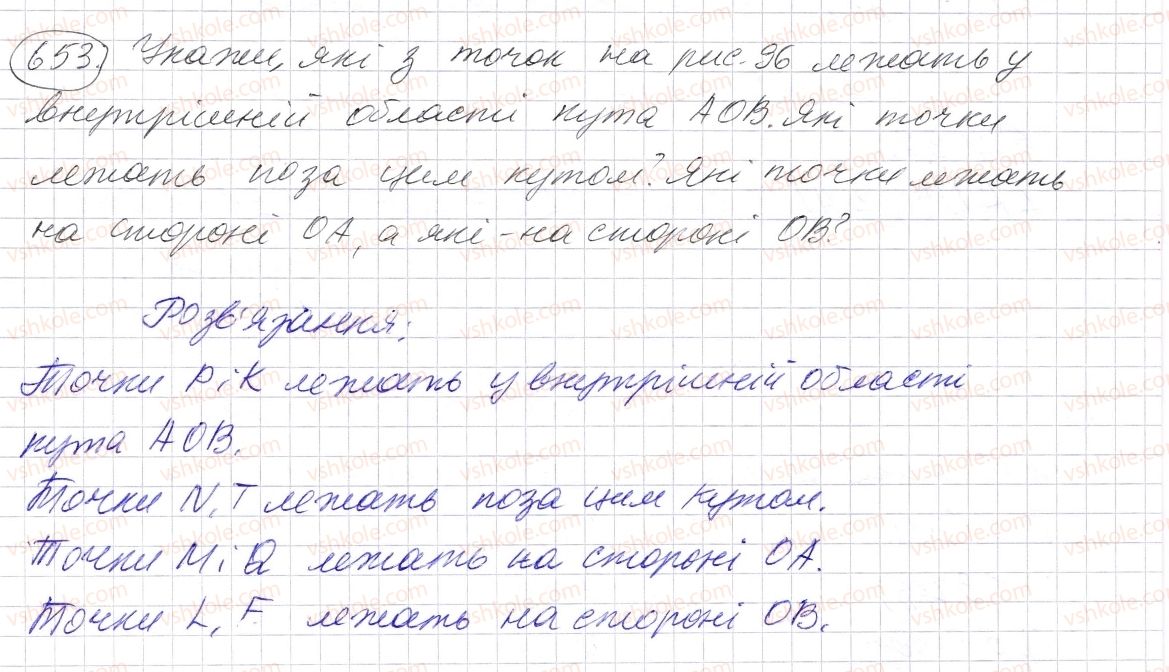 653. Укажи, які з точок на рис. 96 лежать у
внутрішній області кута АОВ. Які точки
лежать поза цим кутом? Які точки лежать
на стороні ОА, а які - на стороні ОВ?
Розв'язання:
Точки Р і К лежать у внутрішній області
кута АОВ.
Точки N, T лежать поза цим кутом.
Точки М і Q лежать на стороні ОА.
Точки L, F лежать на стороні ОВ.